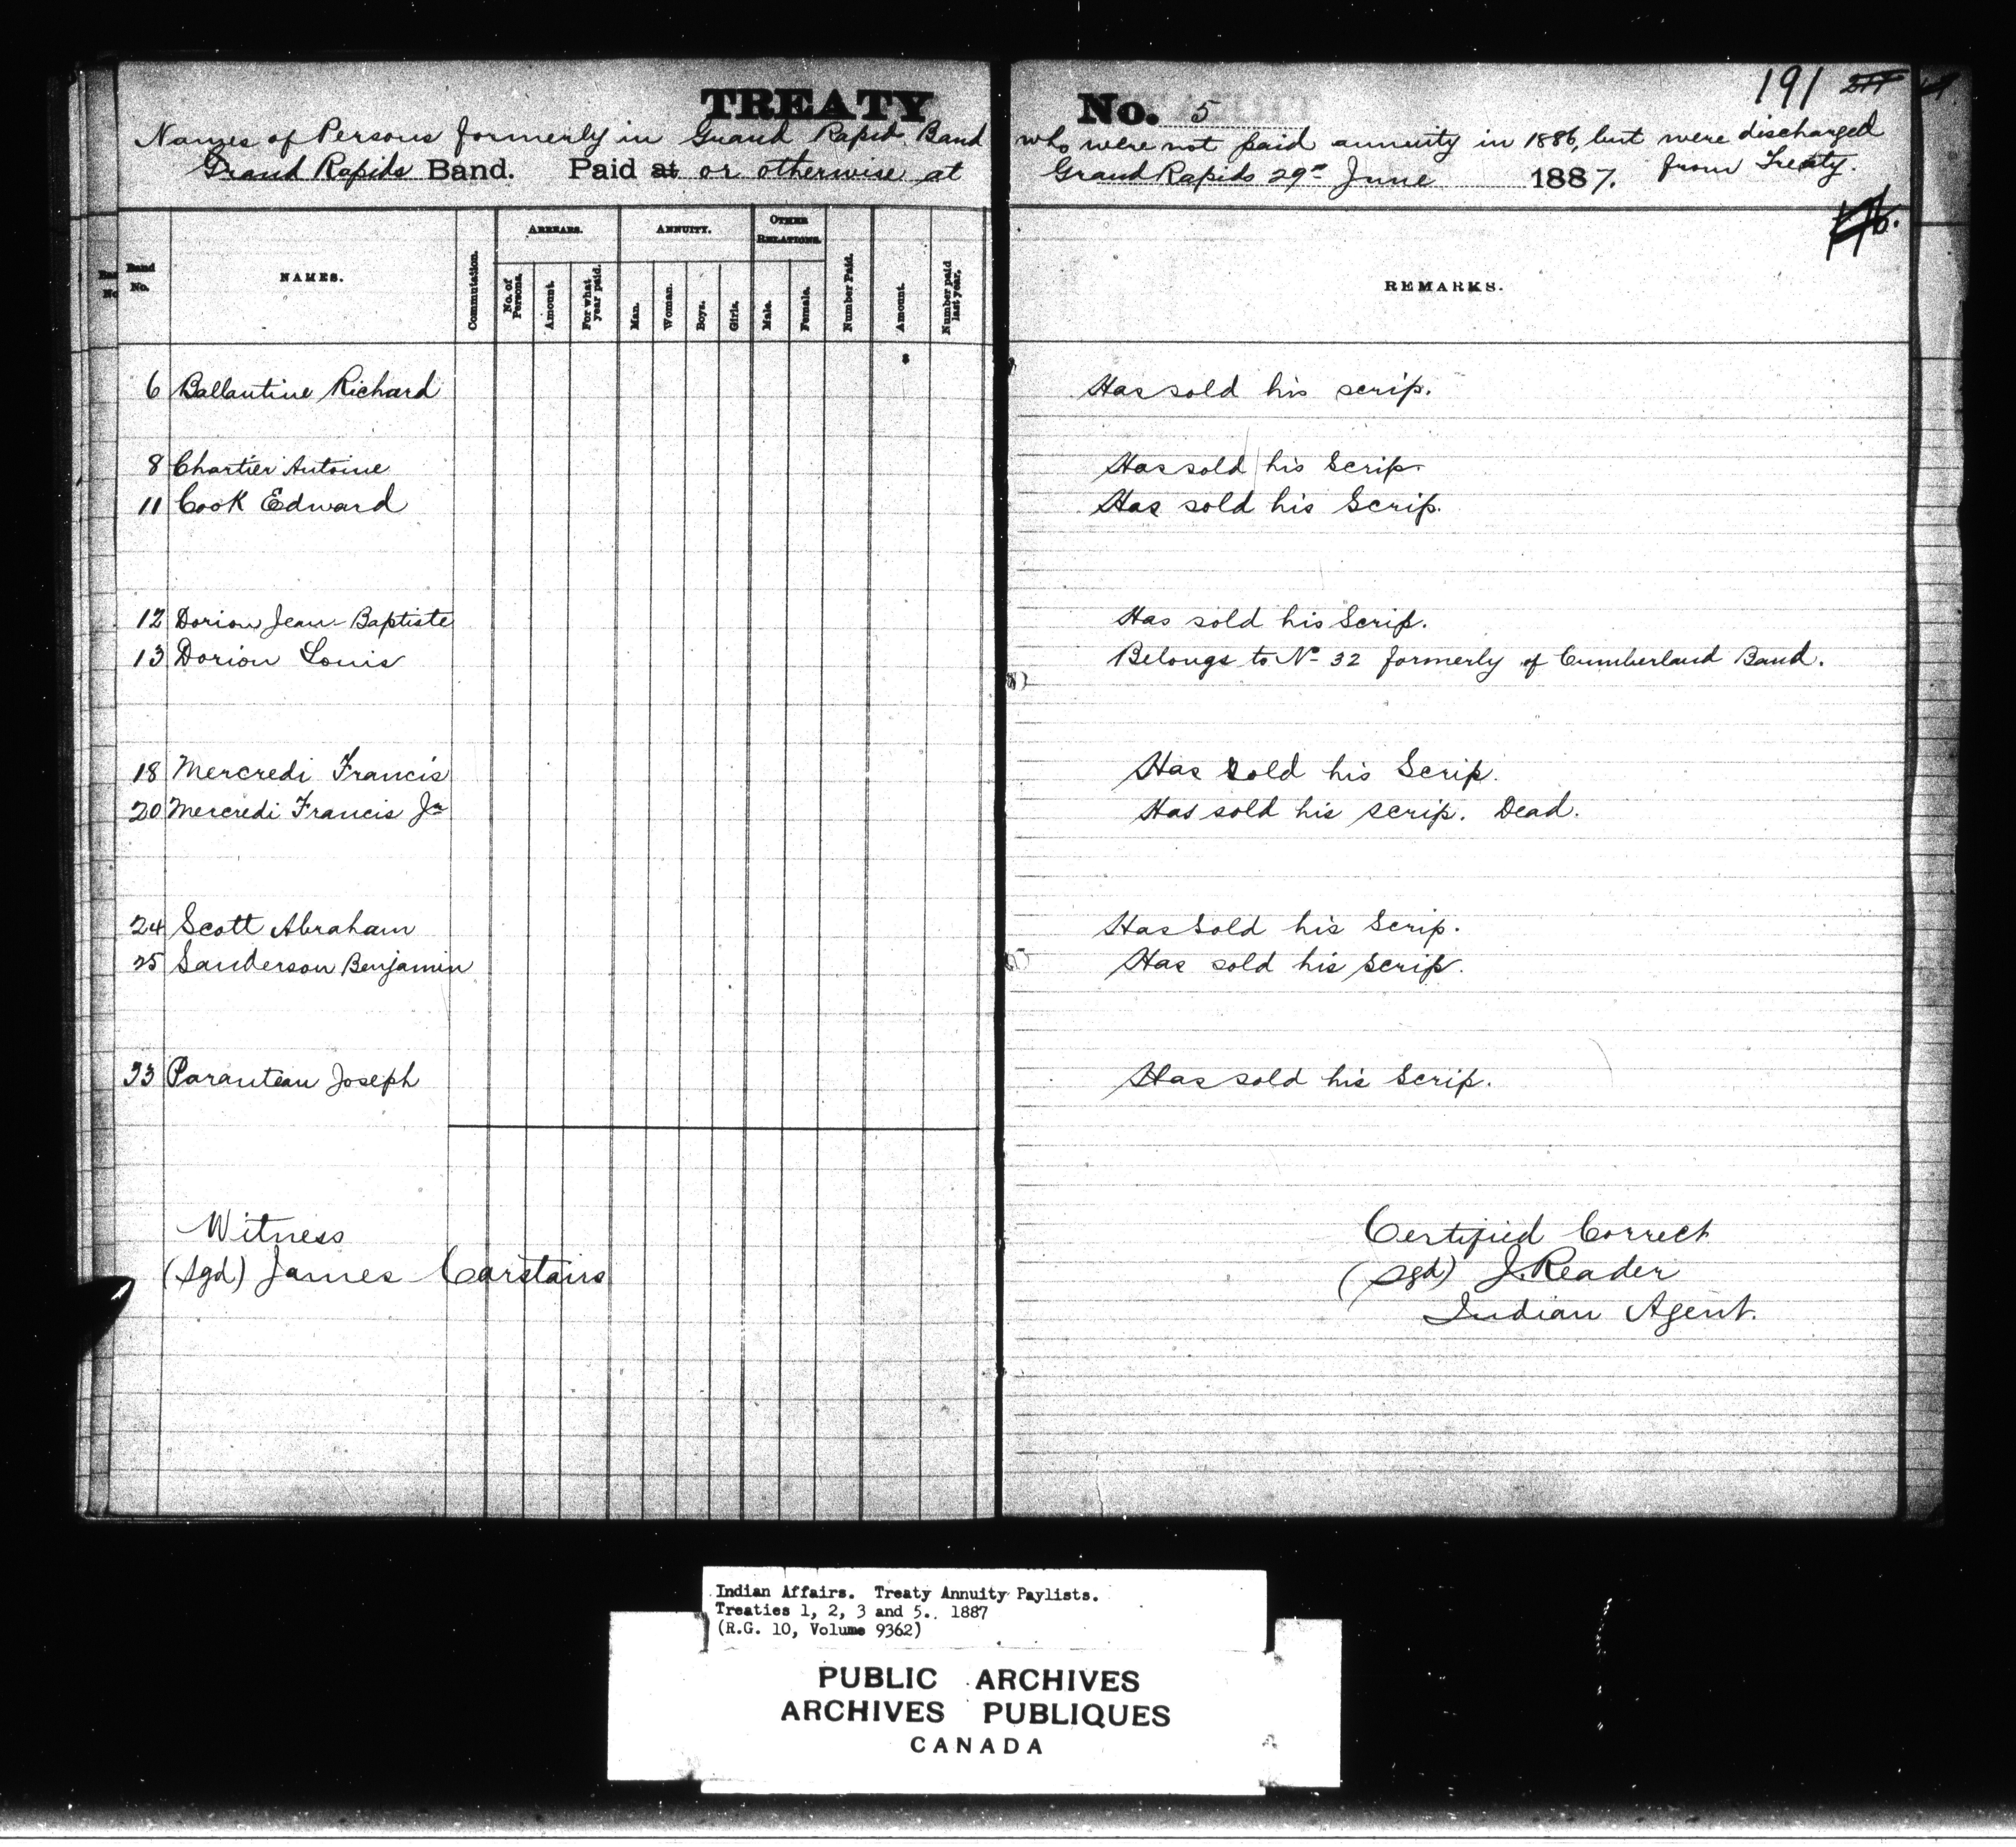 191
TREATY No. 5
Names of Persons formerly in Grand Rapids Band who were not paid annuity in 1886, but were discharged
Grand Rapids Band. Paid at or otherwise at Grand Rapids 29th June 1887. from Treaty.
Band No. NAMES. Commutation. ARREARS. No. of Persons. Amount. For what year paid. ANNUITY. Man. Woman. Boys. Girls. OTHER RELATIONS. Male. Female. Number Paid. Amount. Number paid last year. REMARKS.
$
6 Ballantine Richard Has sold his scrip.
8 Chartier Antoine Has sold his Scrip.
11 Cook Edward Has sold his Scrip.
12 Dorion Jean-Baptiste Has sold his Scrip.
13 Dorion Louis Belongs to No 32 formerly of Cumberland Band.
18 Mercredi Francis Has sold his Scrip.
20 Mercredi Francis Jr Has sold his scrip. Dead.
24 Scott Abraham Has Sold his Scrip.
25 Sanderson Benjamin Has sold his Scrip.
33 Paranteau Joseph Has sold his Scrip.
Witness Certified Correct
(Sgd) James Carstairs (Sgd) J. Reader
Indian Agent.
Indian Affairs. Treaty Annuity Paylists.
Treaties 1, 2, 3 and 5. 1887
(R.G. 10, Volume 9362)
PUBLIC ARCHIVES
ARCHIVES PUBLIQUES
CANADA